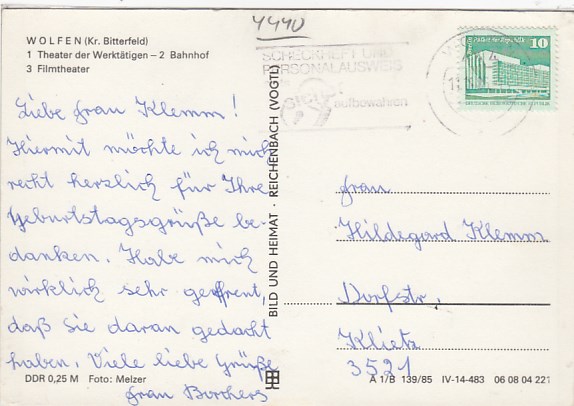 4440
WOLFEN (Kr. Bitterfeld)
1 Theater der Werktätigen – 2 Bahnhof
3 Filmtheater
SCHECKHEFT UND
PERSONALAUSWEIS
aufbewahren
10
DEUTSCHE DEMOKRATISCHE REPUBLIK
Liebe Frau Klemm!
Hiermit möchte ich mich
recht herzlich für Ihre
Geburtstagsgrüße be-
danken. Habe mich
wirklich sehr gefreut,
daß Sie daran gedacht
haben. Viele liebe Grüße
Frau Borchers
BILD UND HEIMAT · REICHENBACH (VOGTL)
Frau
Hildegard Klemm
Dorfstr.
Klietz
3521
DDR 0,25 M Foto: Melzer
A 1/B 139/85 IV-14-483 06 08 04 221